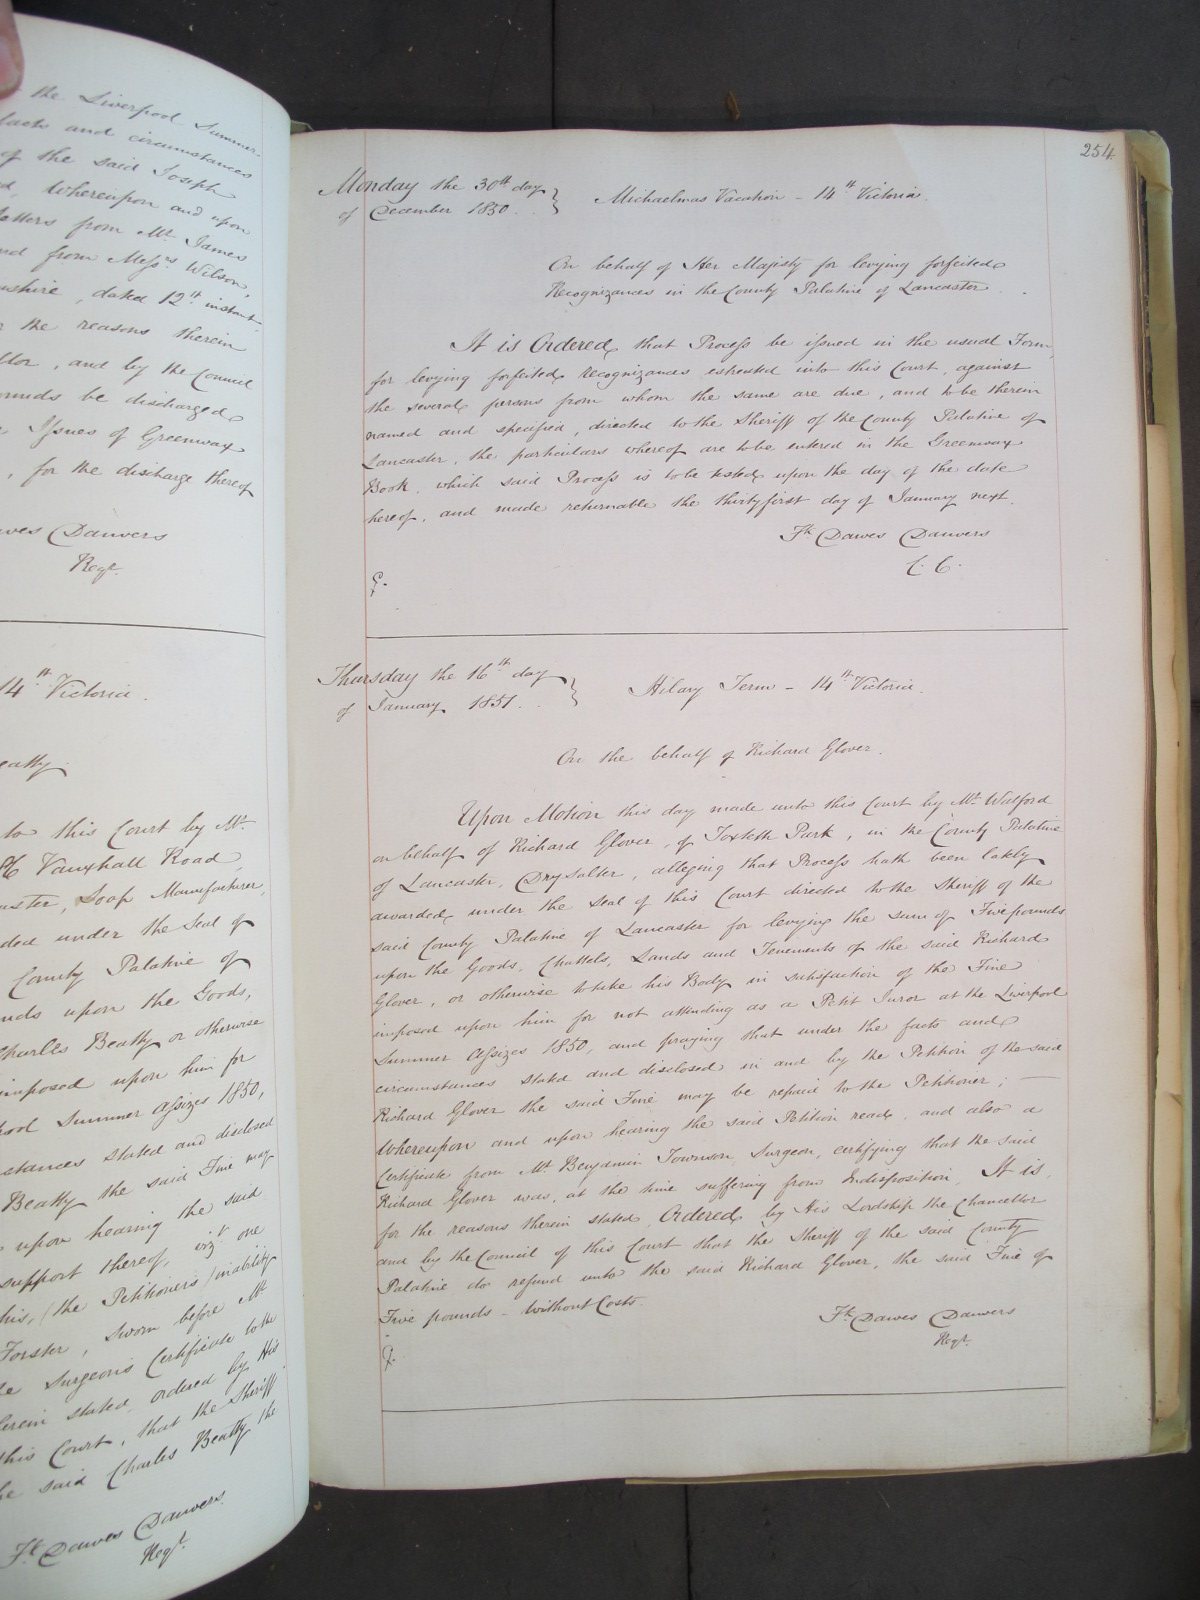 the Liverpool Summer
facts and circumstances
of the said Joseph
Whereupon and upon
letters from Mr. James
and from Messrs Wilson,
dated 12th instant
the reasons therein
and by the Council
be discharged
Issues of Greenwax
for the discharge thereof
Danvers
Regr.
14th Victoria.
to this Court by Mr.
Vauxhall Road,
Soap Manufacturer,
under the Seal of
County Palatine of
upon the Goods,
Charles Beatty or otherwise
imposed upon him for
Summer Assizes 1850,
stated and disclosed
Beatty the said Fine may
upon hearing the said
support thereof, vizt one
his, (the Petitioners) inability
Forster, sworn before Mr
Surgeons Certificate to the
stated, ordered by His
this Court, that the Sheriff
said Charles Beatty the
Fk. Dawes Danvers.
Regr.
254
Monday the 30th day
of December 1850.
Michaelmas Vacation - 14th Victoria.
On behalf of Her Majesty for levying forfeited
Recognizances in the County Palatine of Lancaster.
It is Ordered that Process be issued in the usual Form,
for levying forfeited recognizances estreated into this Court, against
the several persons from whom the same are due, and to be therein
named and specified, directed to the Sheriff of the County Palatine of
Lancaster, the particulars whereof are to be entered in the Greenwax
Book, which said Process is to be tested upon the day of the date
hereof, and made returnable the thirtyfirst day of January next.
Fk. Dawes Danvers
C. C.
Thursday the 16th day
of January 1851.
Hilary Term - 14th Victoria.
On the behalf of Richard Glover.
Upon Motion this day made unto this Court by Mr Walford
on behalf of Richard Glover, of Toxteth Park, in the County Palatine
of Lancaster, Drysalter, alleging that Process hath been lately
awarded under the Seal of this Court directed to the Sheriff of the
said County Palatine of Lancaster for levying the sum of Five pounds
upon the Goods, Chattels, Lands and Tenements of the said Richard
Glover, or otherwise to take his Body in satisfaction of the Fine
imposed upon him for not attending as a Petit Juror at the Liverpool
Summer Assizes 1850, and praying that under the facts and
circumstances stated and disclosed in and by the Petition of the said
Richard Glover the said Fine may be repaid to the Petitioner; —
Whereupon and upon hearing the said Petition read, and also a
Certificate from Mr Benjamin Townson, Surgeon, certifying that the said
Richard Glover was, at the time suffering from Indisposition, It is,
for the reasons therein stated, Ordered by His Lordship the Chancellor
and by the Council of this Court that the Sheriff of the said County
Palatine do refund unto the said Richard Glover, the said Fine of
Five pounds - without Costs.
Fk. Dawes Danvers
Regr.